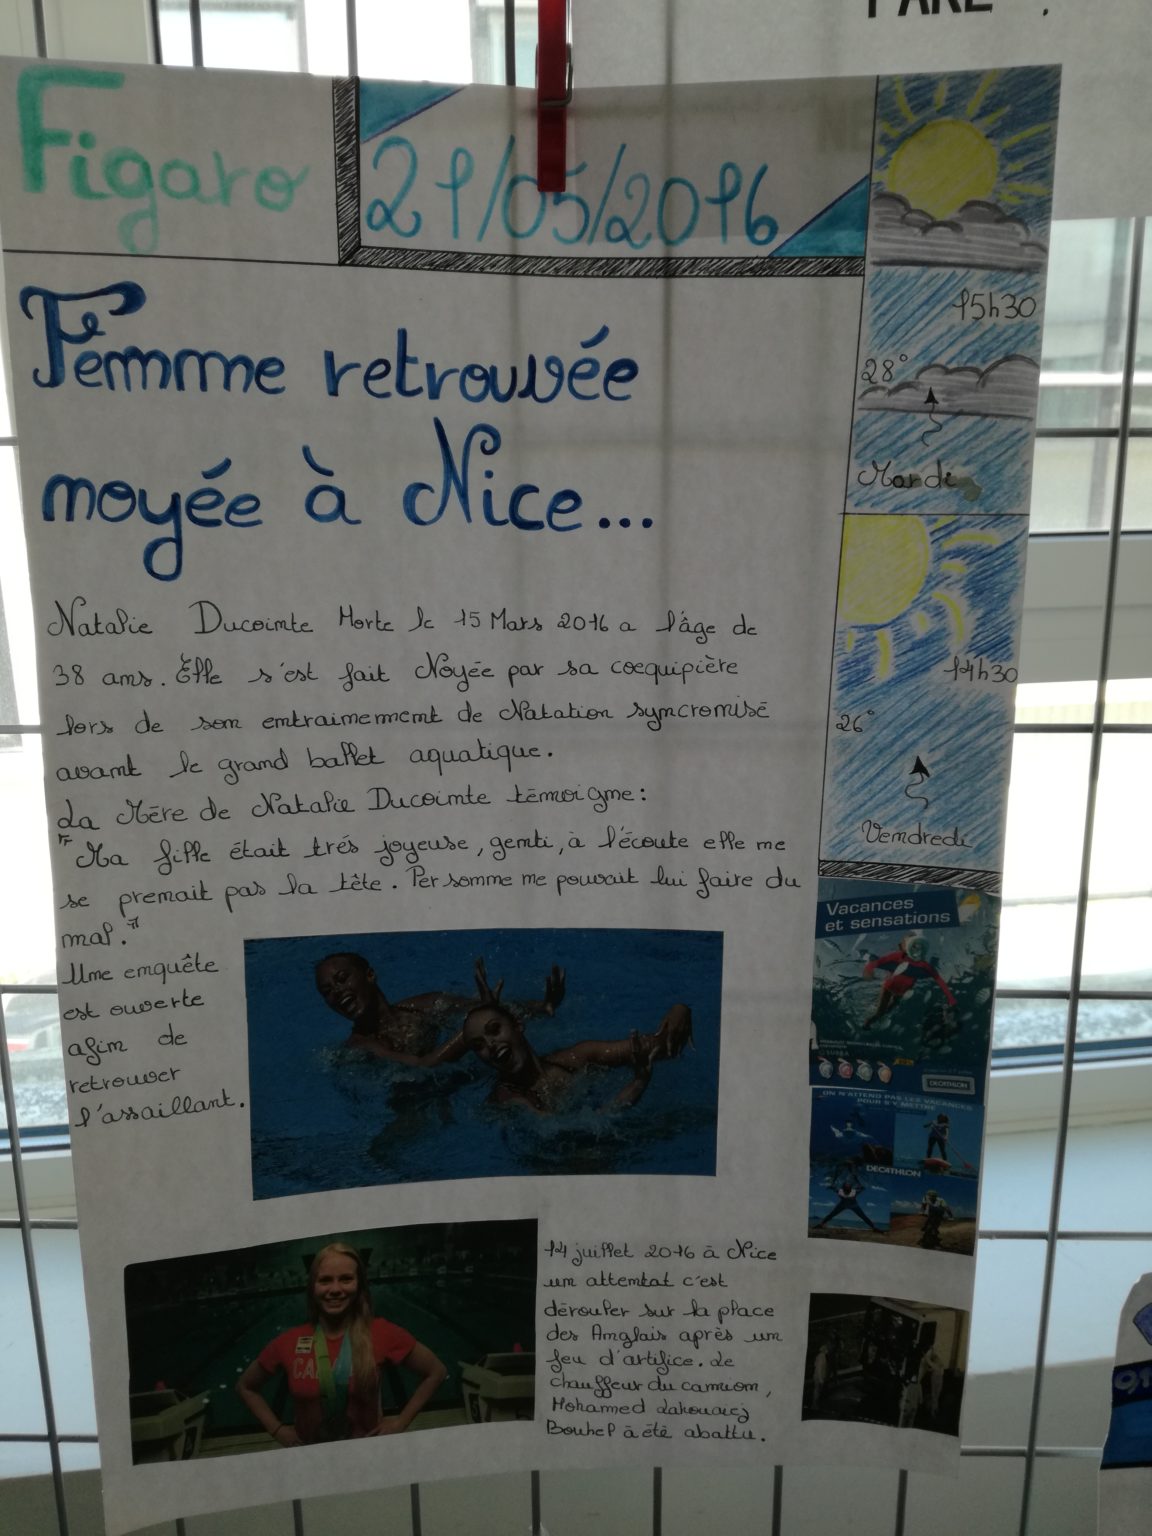 Figaro
21/05/2016
Femme retrouvée
noyée à Nice...
Natalie Ducointe Morte le 15 Mars 2016 a l'âge de
38 ans. Elle s'est fait Noyée par sa coequipière
lors de son entrainnement de Natation syncronisé
avant le grand ballet aquatique.
La Mère de Natalie Ducointe témoigne:
"Ma fille était trés joyeuse, genti, à l'écoute elle ne
se prenait pas la tête. Per sonne ne pouvait lui faire du
mal."
Une enquête
est ouverte
afin de
retrouver
l'assaillant.
14 juillet 2016 à Nice
un attentat c'est
dérouler sur la place
des Anglais après un
feu d'artifice. Le
chauffeur du camion,
Mohamed
Bouhel à été abattu.
15h30
28°
Mardi
14h30
26°
Vendredi
Vacances
et sensations
SUBEA
DECATHLON
ON N'ATTEND PAS LES VACANCES
POUR S'Y METTRE
DECATHLON